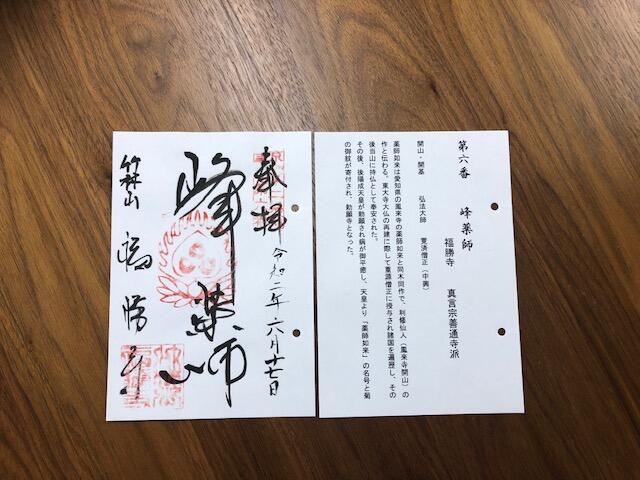 奉拝
令和二年六月十七日
峰薬師
竹林山 福勝寺
第六番 峰薬師
福勝寺 真言宗善通寺派
開山・開基 弘法大師 寛済僧正(中興)
薬師如来は愛知県の鳳来寺の薬師如来と同木同作で、利修仙人(鳳来寺開山)の
作と伝わる。東大寺大仏の再建に際して重源僧正に授与され諸国を遍歴し、その
後当山に持仏として奉安された。
その後、後陽成天皇が勅願され病が御平癒し、天皇より「薬師如来」の名号と菊
の御紋が寄付され、勅願寺となった。